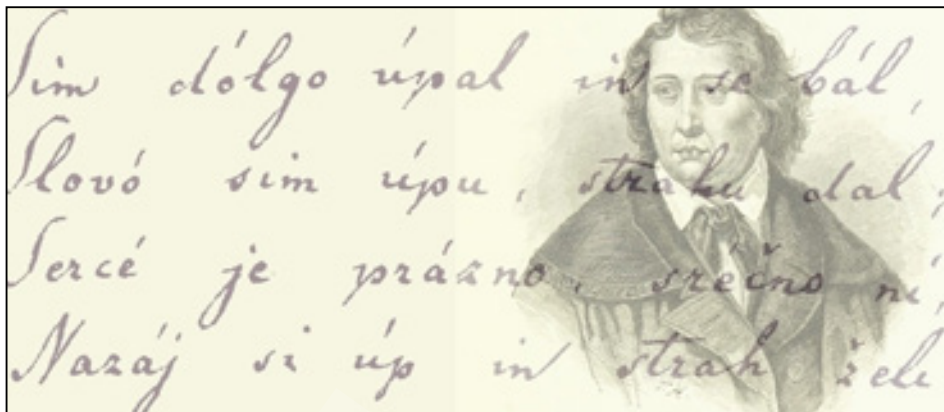 Sim dólgo úpal in se bál,
Slovó sim úpu, strahu dal;
Sercé je prázno, srečno ni,
Nazáj si úp in strah želi